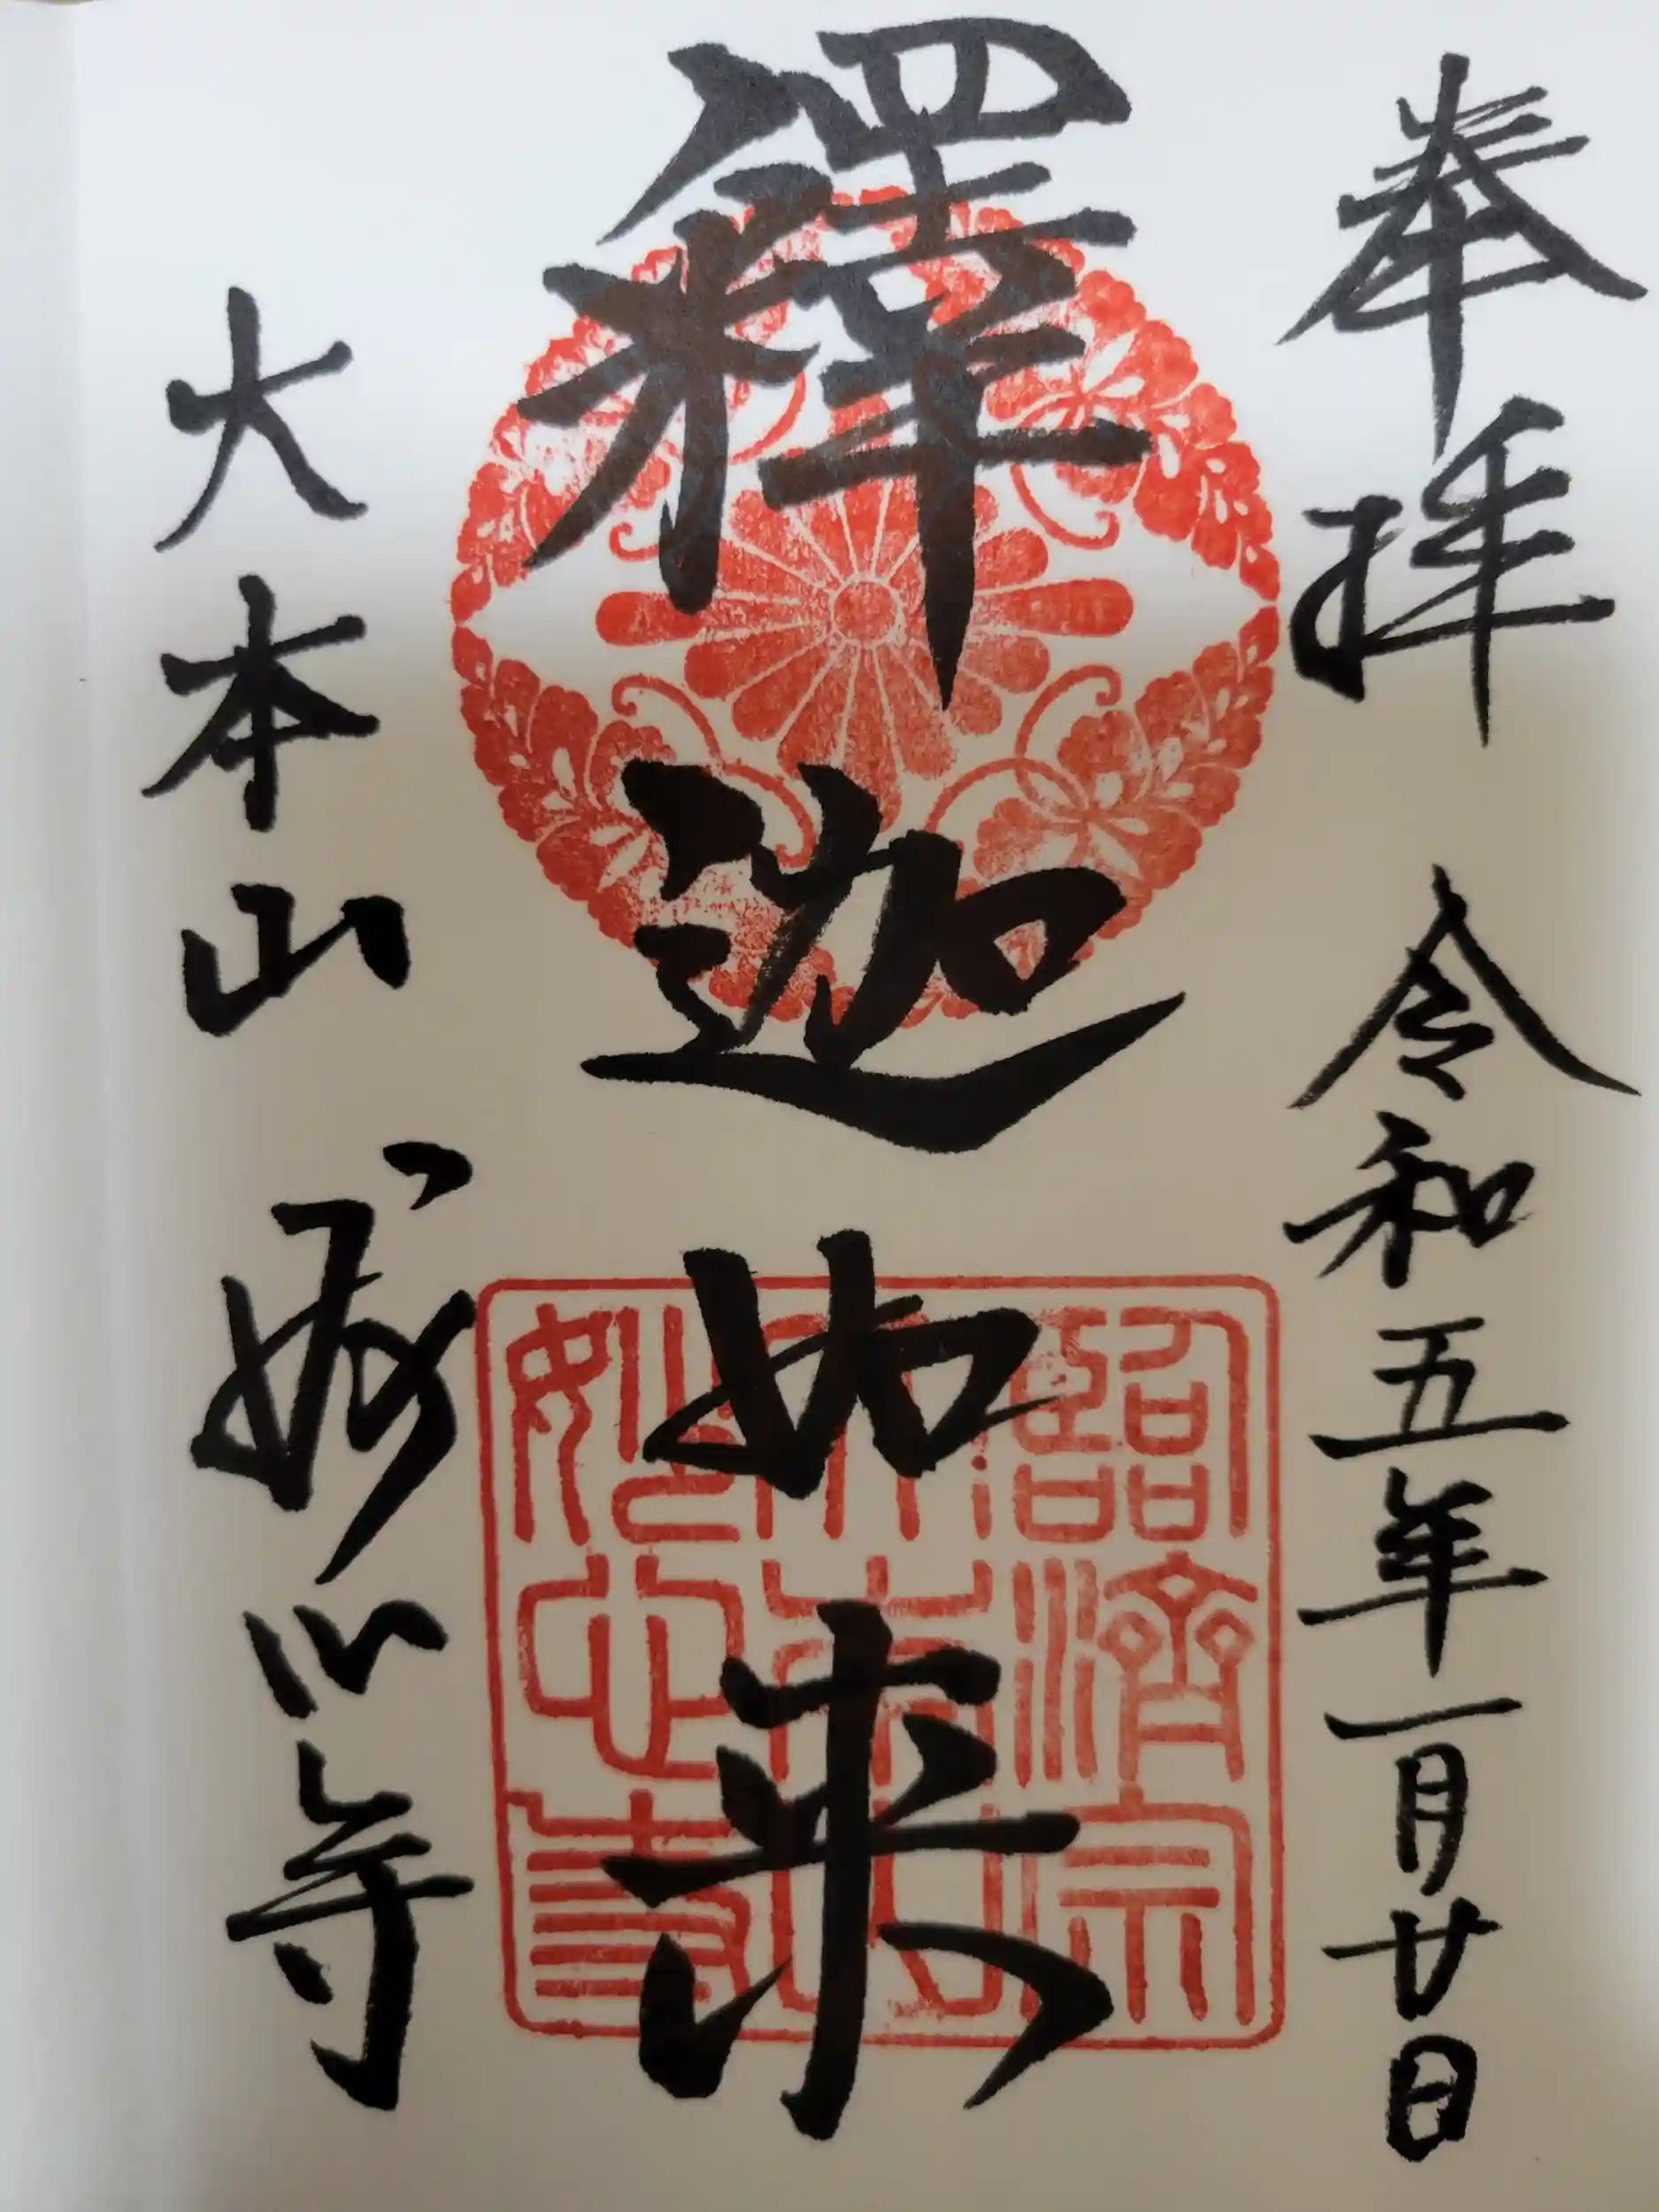 奉拝 令和五年一月廿日
釋迦如来
大本山 妙心寺
臨濟宗
大本山
妙心寺